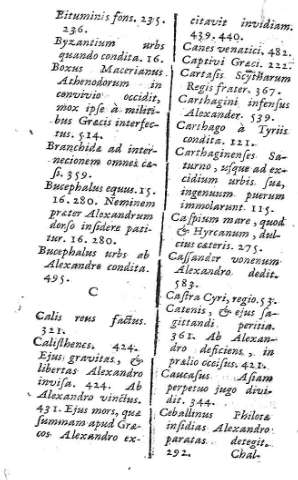 Bituminis fons. 235.
236.
Byzantium urbs
quando condita. 16.
Boxus Macerianus
Athenodorum in
convivio occidit,
mox ipse à militi-
bus Græcis interfec-
tus. 514.
Branchidæ ad inter-
necionem omnes cæ-
si. 359.
Bucephalus equus. 15.
16. 280. Neminem
præter Alexandrum
dorso insidere pati-
tur. 16. 280.
Bucephalus urbs ab
Alexandro condita.
495.
C
Calis reus factus.
321.
Calisthenes. 424.
Ejus gravitas, &
libertas Alexandro
invisa. 424. Ab
Alexandro vinctus.
431. Ejus mors, quæ
summam apud Græ-
cos Alexandro ex-
citavit invidiam.
439. 440.
Canes venatici. 482.
Captivi Græci. 222.
Cartasis Scytharum
Regis frater. 367.
Carthagini infensus
Alexander. 539.
Carthago à Tyriis
condita. 121.
Carthaginenses Sa-
turno, usque ad ex-
cidium urbis suæ,
ingenuum puerum
immolarunt. 115.
Caspium mare, quod
& Hyrcanum, dul-
cius cæteris. 275.
Cassander venenum
Alexandro dedit.
583.
Castra Cyri, regio. 53.
Catenis, & ejus sa-
gittandi peritia.
361. Ab Alexan-
dro deficiens, in
prælio occisus. 421.
Caucasus Asiam
perpetuo jugo divi-
dit. 344.
Ceballinus Philotæ
insidias Alexandro
paratas detegit.
292. Chal-